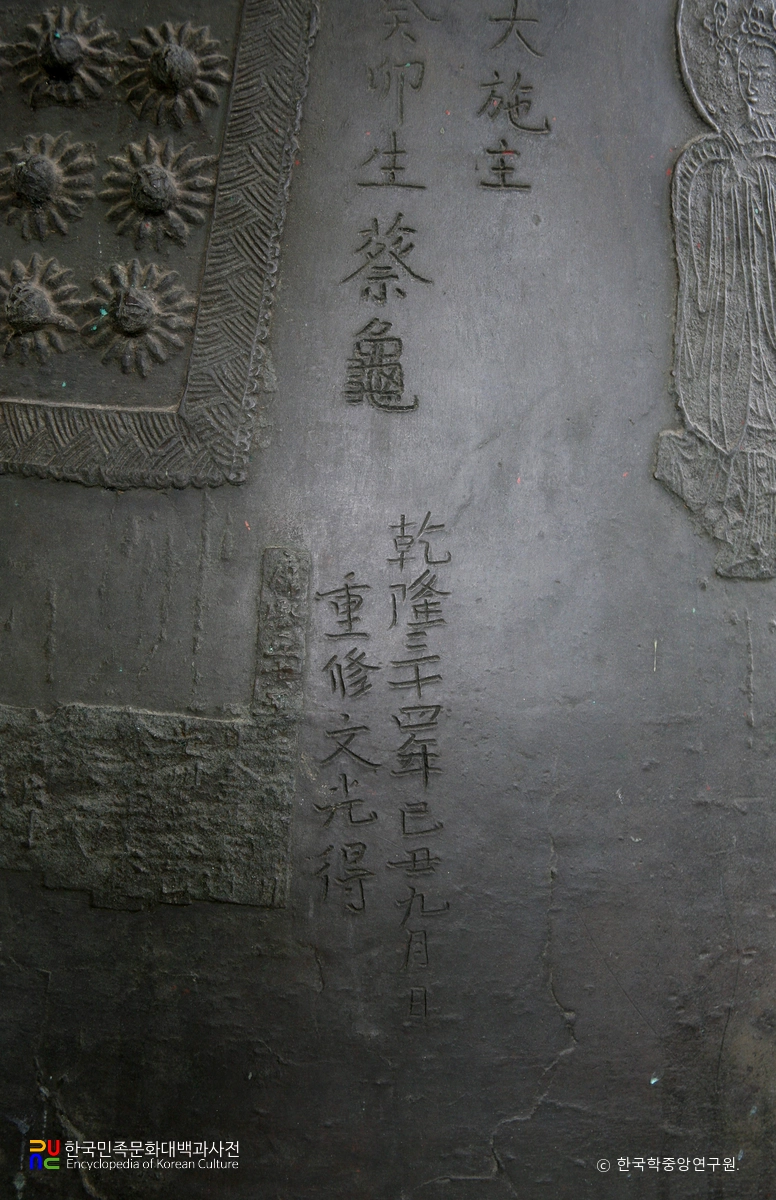 大施主
癸卯生蔡龜
乾隆三十四年己丑九月日
重修文光得
한국민족문화대백과사전
Encyclopedia of Korean Culture
ⓒ 한국학중앙연구원.